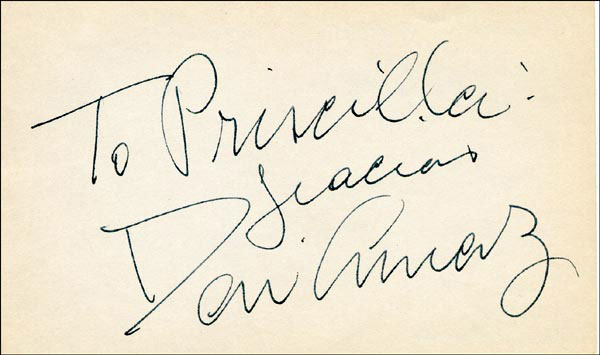 To Priscilla:
Gracias
Desi Arnaz